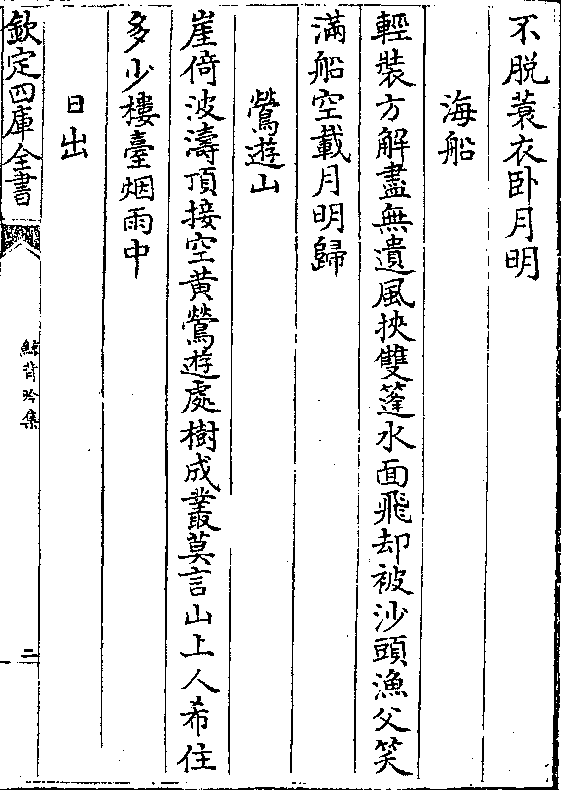 不脱蓑衣卧月明
海船
輕裝方解盡無遺風挾雙篷水面飛却被沙頭漁父笑
滿船空載月明歸
鶯遊山
崖倚波濤頂接空黄鶯遊處樹成叢莫言山上人希住
多少樓臺烟雨中
日出
欽定四庫全書
鯨背吟集
二